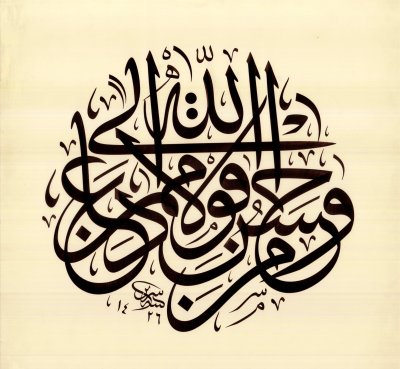 ومن احسن قولا ممن دعا الى الله
١٤٢٦